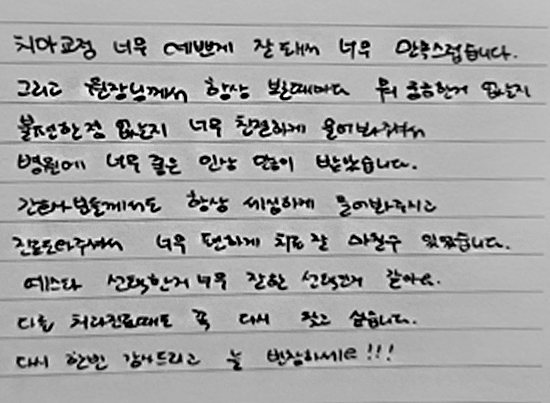 치아교정 너무 예쁘게 잘 돼서 너무 만족스럽습니다.
그리고 원장님께서 항상 볼때마다 뭐 궁금한거 없는지
불편한점 없는지 너무 친절하게 물어봐주셔서
병원에 너무 좋은 인상 많이 받았습니다.
간호사분들께서도 항상 세심하게 물어봐주시고
진료도와주셔서 너무 편하게 치료 잘 마칠수 있었습니다.
예스타 선택한거 너무 잘한 선택인거 같아요.
다음 치과진료때도 꼭 다시 찾고 싶습니다.
다시 한번 감사드리고 늘 번창하세요!!!